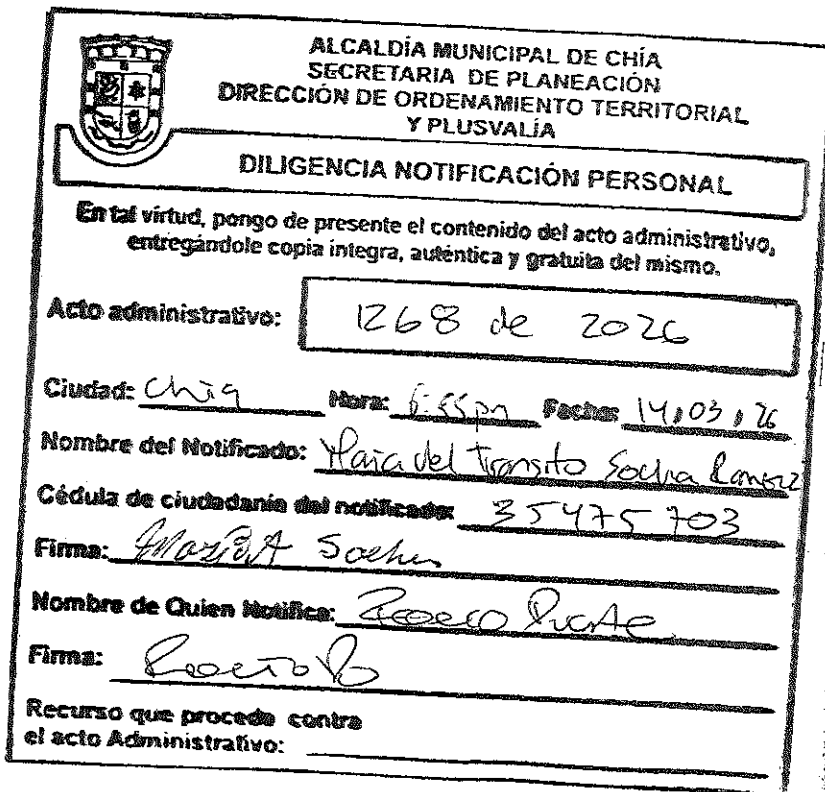 ALCALDÍA MUNICIPAL DE CHÍA
SECRETARIA DE PLANEACIÓN
DIRECCIÓN DE ORDENAMIENTO TERRITORIAL
Y PLUSVALÍA
DILIGENCIA NOTIFICACIÓN PERSONAL
En tal virtud, pongo de presente el contenido del acto administrativo,
entregándole copia integra, auténtica y gratuita del mismo.
Acto administrativo: 1268 de 2026
Ciudad: Chia Hora: Fecha: 14,03,26
Nombre del Notificado: Maria del Transito Socha Ramirez
Cédula de ciudadanía del notificado: 35475703
Firma: Maria Socha
Nombre de Quien Notifica:
Firma: Rocio
Recurso que procede contra
el acto Administrativo: